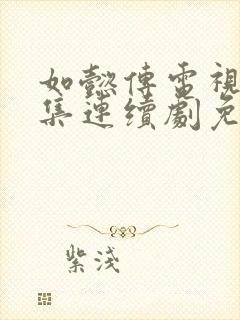 如懿傳電視
集連續劇免
紫淺